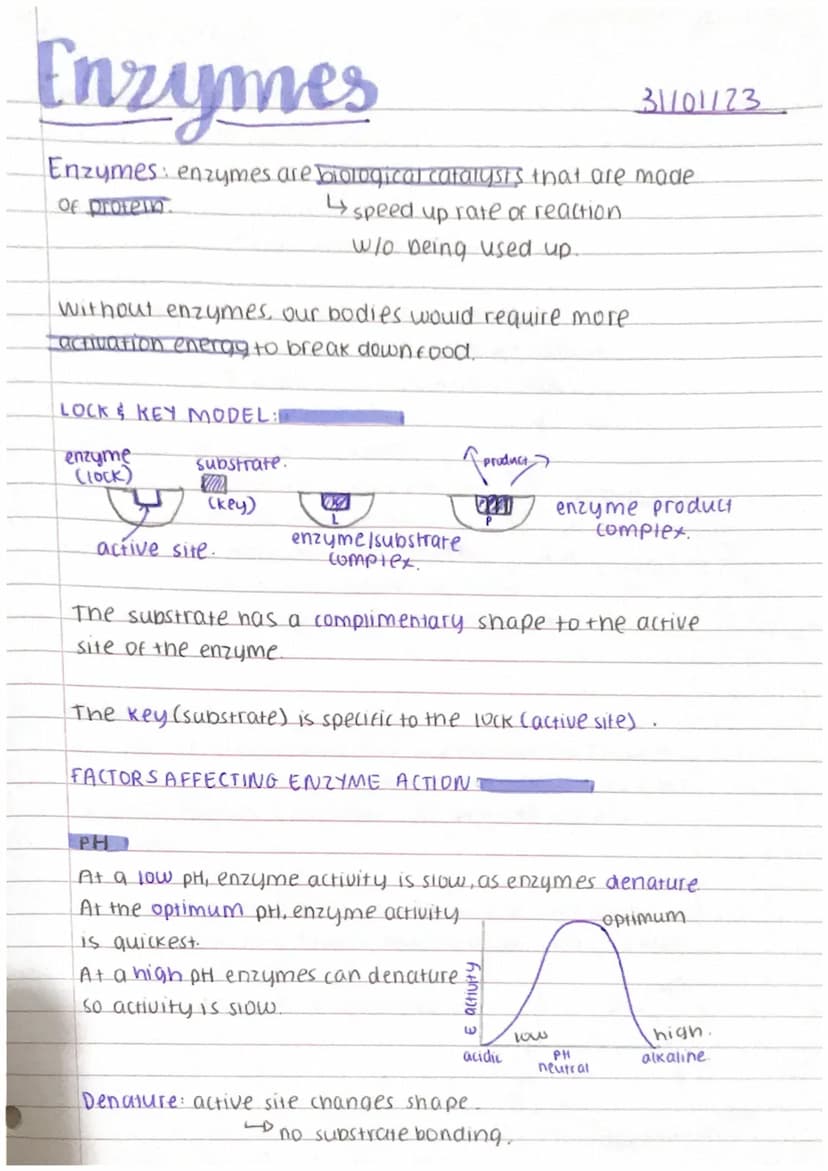 Enzymes
31/01/23
Enzymes: enzymes are biological catalysts that are made
of protein.
↳ speed up rate of reaction
w/o being used up.
Without enzymes, our bodies would require more
activation energy to break down food.
LOCK & KEY MODEL:
enzyme
(lock)
substrate.
(key)
active site.
enzyme/substrate
complex.
product
P
enzyme product
complex.
The substrate has a complimentary shape to the active
site of the enzyme.
The key (substrate) is specific to the lock (active site).
FACTORS AFFECTING ENZYME ACTION
PH
At a low pH, enzyme activity is slow, as enzymes denature
At the optimum pH, enzyme activity
is quickest.
At a high pH enzymes can denature
so activity is slow.
E activity
optimum
low
high.
acidic
PH
neutral
alkaline
Denature: active site changes shape.
↳ no substrate bonding.